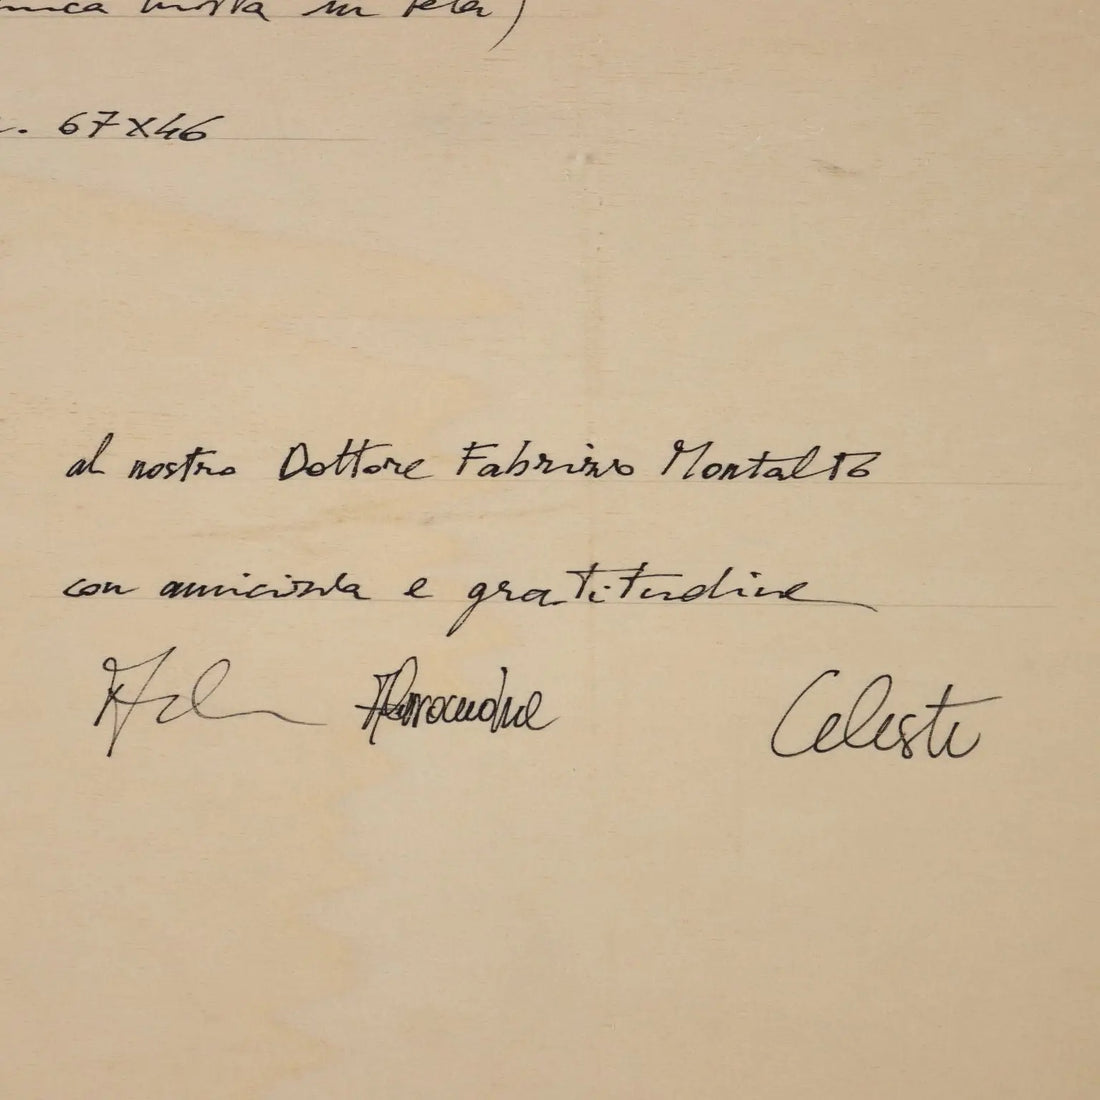 mista su tela)
67x46
al nostro Dottore Fabrizio Montalto
con amicizia e gratitudine
Celeste